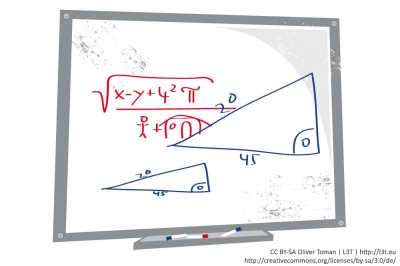 √x-y+4²π
20
45
0
20
45
0
CC BY-SA Oliver Toman | L3T | http://l3t.eu
http://creativecommons.org/licenses/by-sa/3.0/de/